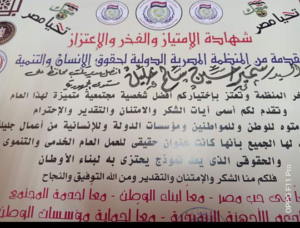 تحيا مصر
تحيا مصر
شهادة الإمتياز والفخر والاعتزاز
مقدمة من المنظمة المصرية الدولية لحقوق الإنسان والتنمية
السيد
المنظمة وتعتز بإختياركم أفضل شخصية مجتمعية متميزة لهذا العام
وتقدم لكم أسمى آيات الشكر والامتنان والتقدير والإحترام
للوطن وللمواطنين ومؤسسات الدولة وللإنسانية من أعمال جليلة
لها الجميع بأنها كانت عنوان حقيقى للعمل الخدمى والتنموى
والحقوقى الذى يعد نموذج يحتزى به لبناء الأوطان
فلكم منا الشكر والإمتنان والتقدير ومن الله التوفيق والنجاح
فى حب مصر - معا لبناء الوطن - معا لخدمة المجتمع
معا لحماية مؤسسات الوطن
OPPO F11 Pro